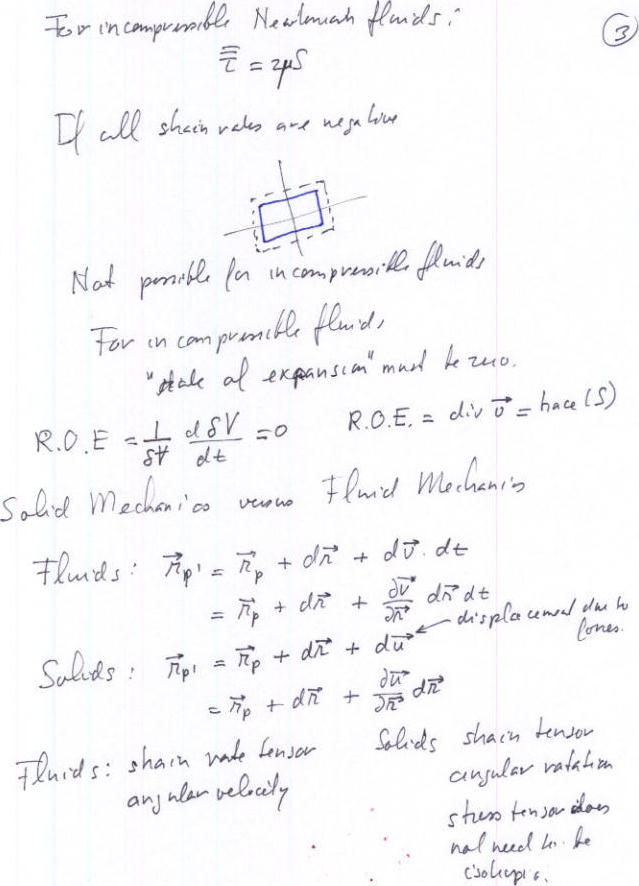 For incompressible Newtonian fluids:
③
τ̿ = 2μS
If all strain rates are negative
Not possible for incompressible fluids
For incompressible fluids,
"state of expansion" must be zero.
R.O.E = 1/δV dδV/dt = 0
R.O.E. = div v⃗ = trace (S)
Solid Mechanics versus Fluid Mechanics
Fluids: r⃗p' = r⃗p + dr⃗ + dv⃗. dt
= r⃗p + dr⃗ + ∂v⃗/∂r⃗ dr⃗ dt
displacement due to
forces.
Solids: r⃗p' = r⃗p + dr⃗ + du⃗
= r⃗p + dr⃗ + ∂u⃗/∂r⃗ dr⃗
Fluids: strain rate tensor
angular velocity
Solids strain tensor
angular rotation
stress tensor does
not need to be
isotropic.